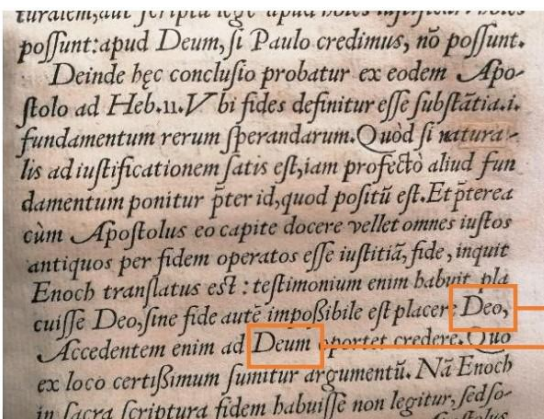 turalem, aut scripta lege apud
possunt: apud Deum, si Paulo credimus, nõ possunt.
Deinde hęc conclusio probatur ex eodem Apo-
stolo ad Heb. 11. Vbi fides definitur esse substãtia .i.
fundamentum rerum sperandarum. Quòd si natura-
lis ad iustificationem satis est, iam profectò aliud fun
damentum ponitur p̃ter id, quod positũ est. Et p̃terea
cùm Apostolus eo capite docere vellet omnes iustos
antiquos per fidem operatos esse iustitiã, fide, inquit
Enoch translatus est: testimonium enim habuit pla
cuisse Deo, sine fide autẽ impoßibile est placere Deo,
Accedentem enim ad Deum oportet credere. Quo
ex loco certißimum sumitur argumentũ. Nã Enoch
in sacra scriptura fidem habuisse non legitur, sed so-